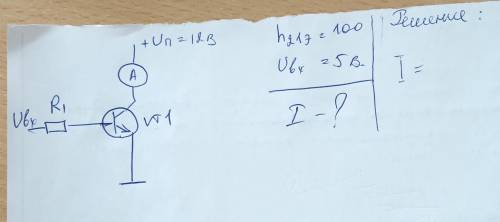 +Uп = 12В
A
R1
Uвх
VT1
h21э = 100
Uвх = 5 В.
I - ?
Решение :
I =